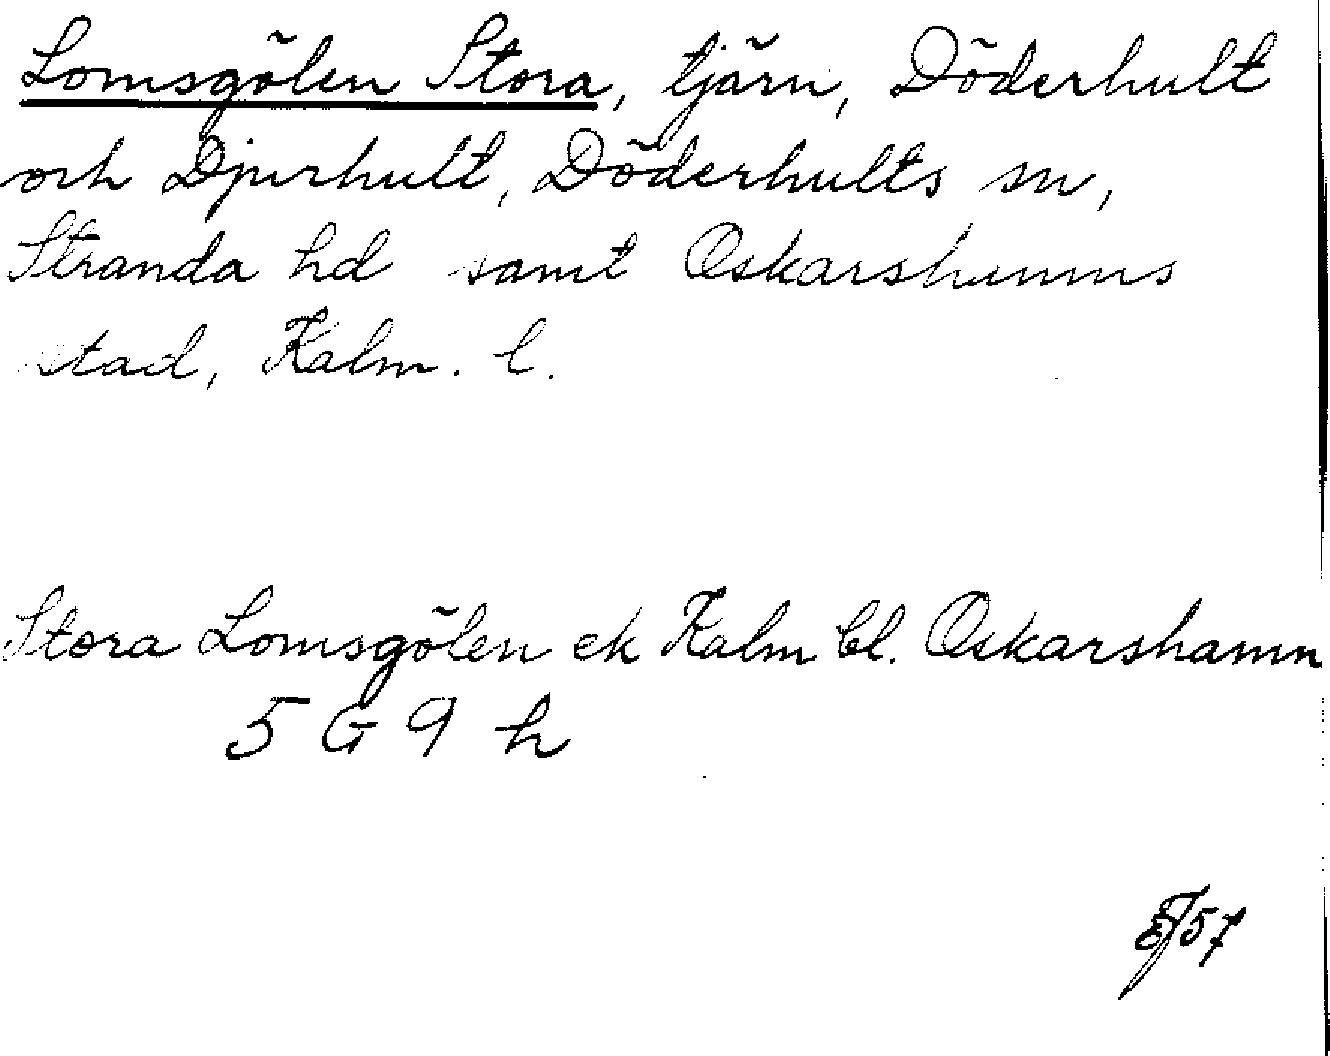 Lomsgölen Stora, tjärn, Döderhult
och Djurhult, Döderhults sn,
Stranda hd samt Oskarshamns
stad, Kalm. l.
Stora Lomsgölen ek Kalm bl. Oskarshamn
5 G 9 h
57